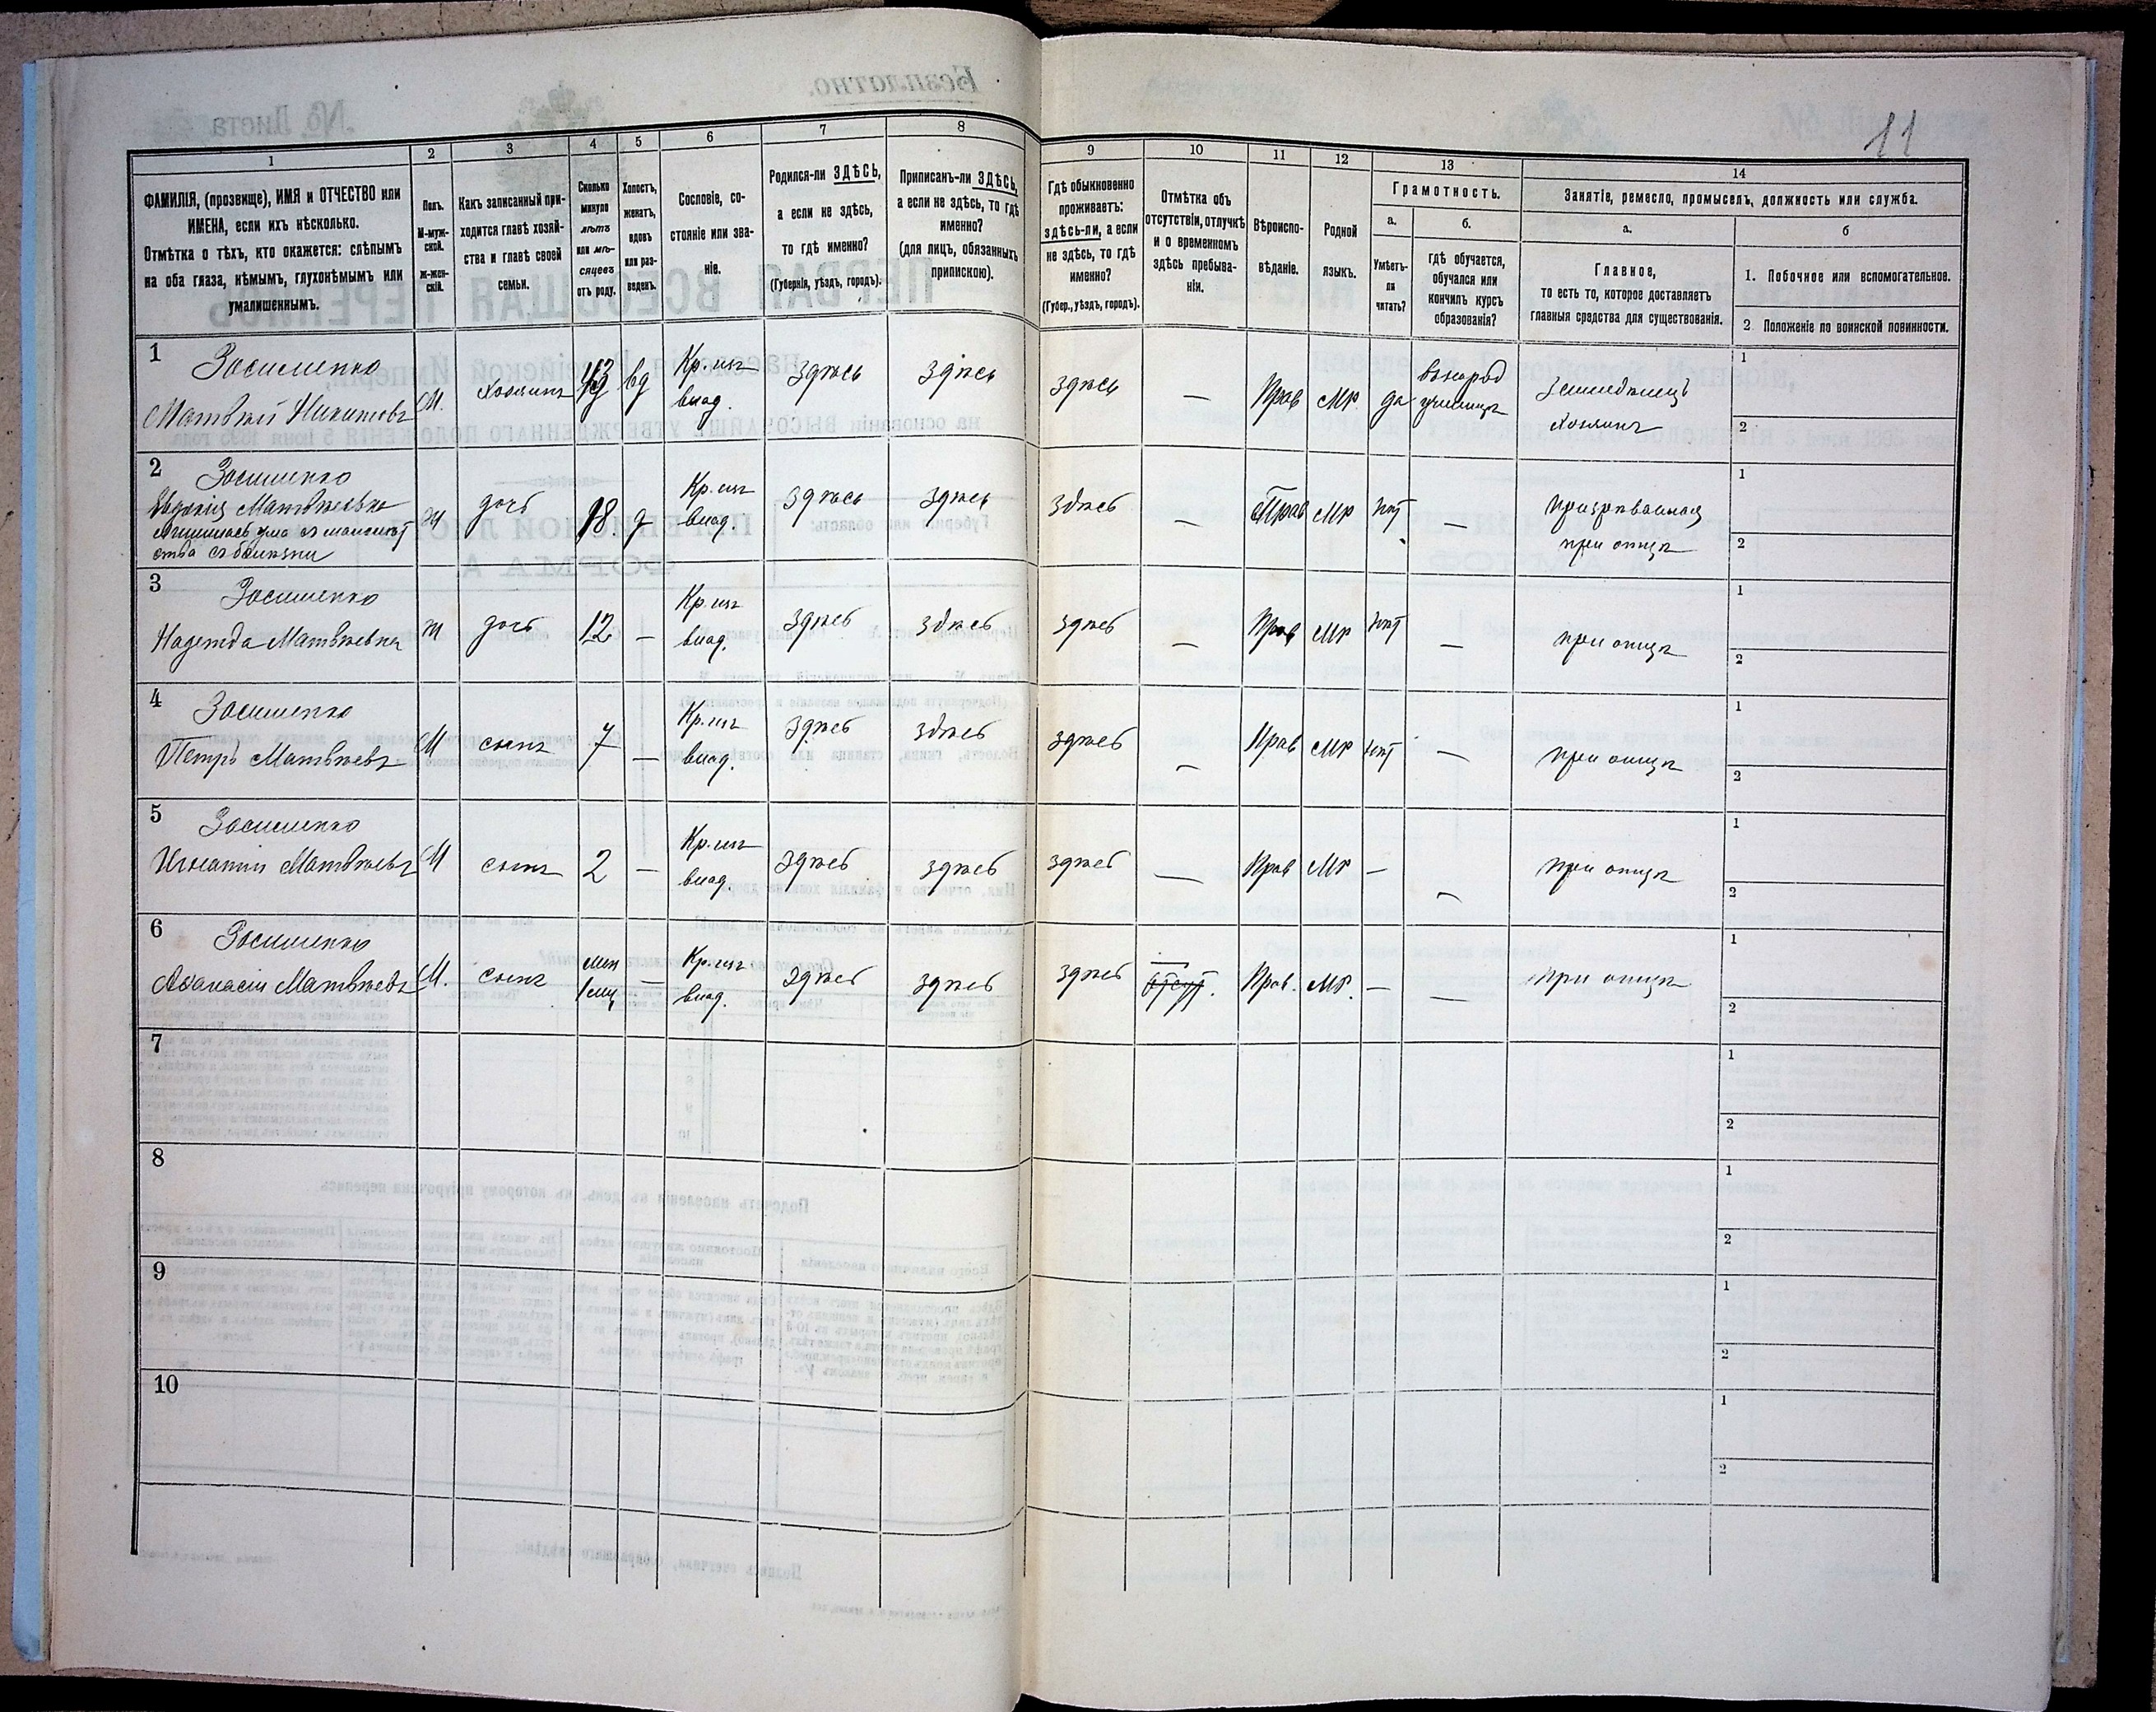 11
1
2
3
4
5
6
7
8
9
10
11
12
13
14
ФАМИЛІЯ, (прозвище), ИМЯ и ОТЧЕСТВО или
ИМЕНА, если ихъ нѣсколько.
Отмѣтка о тѣхъ, кто окажется: слѣпымъ
на оба глаза, нѣмымъ, глухонѣмымъ или
умалишеннымъ.
Полъ.
М-муж-
ской.
ж-жен-
скій.
Какъ записанный при-
ходится главѣ хозяй-
ства и главѣ своей
семьи.
Сколько
минуло
лѣтъ
или мѣ-
сяцевъ
отъ роду.
Холостъ,
женатъ,
вдовъ
или раз-
веденъ.
Сословіе, со-
стояніе или зва-
ніе.
Родился-ли ЗДѢСЬ,
а если не здѣсь,
то гдѣ именно?
(Губернія, уѣздъ, городъ).
Приписанъ-ли ЗДѢСЬ,
а если не здѣсь, то гдѣ
именно?
(для лицъ, обязанныхъ
припискою).
Гдѣ обыкновенно
проживаетъ:
здѣсь-ли, а если
не здѣсь, то гдѣ
именно?
(Губер., уѣздъ, городъ).
Отмѣтка объ
отсутствіи, отлучкѣ
и о временномъ
здѣсь пребыва-
ніи.
Вѣроиспо-
вѣданіе.
Родной
языкъ.
Грамотность.
а.
Умѣетъ-
ли
читать?
б.
гдѣ обучается,
обучался или
кончилъ курсъ
образованія?
Занятіе, ремесло, промыселъ, должность или служба.
а.
Главное,
то есть то, которое доставляетъ
главныя средства для существованія.
б
1. Побочное или вспомогательное.
2. Положеніе по воинской повинности.
1 Зосименко
Матвѣй Никитовъ М. Хозяинъ вд Кр. изъ влад. здѣсь здѣсь здѣсь — Прав Мр. да училищѣ Земледѣлецъ хозяинъ 1 2
2 Зосименко
Евдокія Матвѣевна
ж дочь 18. д Кр. изъ влад. здѣсь здѣсь здѣсь — Прав Мр нѣт — при отцѣ 1 2
3 Зосименко
Надежда Матвѣевна ж дочь 12 — Кр. изъ влад. здѣсь здѣсь здѣсь — Прав Мр нѣт — при отцѣ 1 2
4 Зосименко
Петръ Матвѣевъ М сынъ 7 — Кр. изъ влад. здѣсь здѣсь здѣсь — Прав Мр нѣт — при отцѣ 1 2
5 Зосименко
Игнатій Матвѣевъ М сынъ 2 — Кр. изъ влад. здѣсь здѣсь здѣсь — Прав Мр — — при отцѣ 1 2
6 Зосименко
Афанасій Матвѣевъ М. сынъ — Кр. изъ влад. здѣсь здѣсь здѣсь — Прав. Мр. — — при отцѣ 1 2
7 1 2
8 1 2
9 1 2
10 1 2